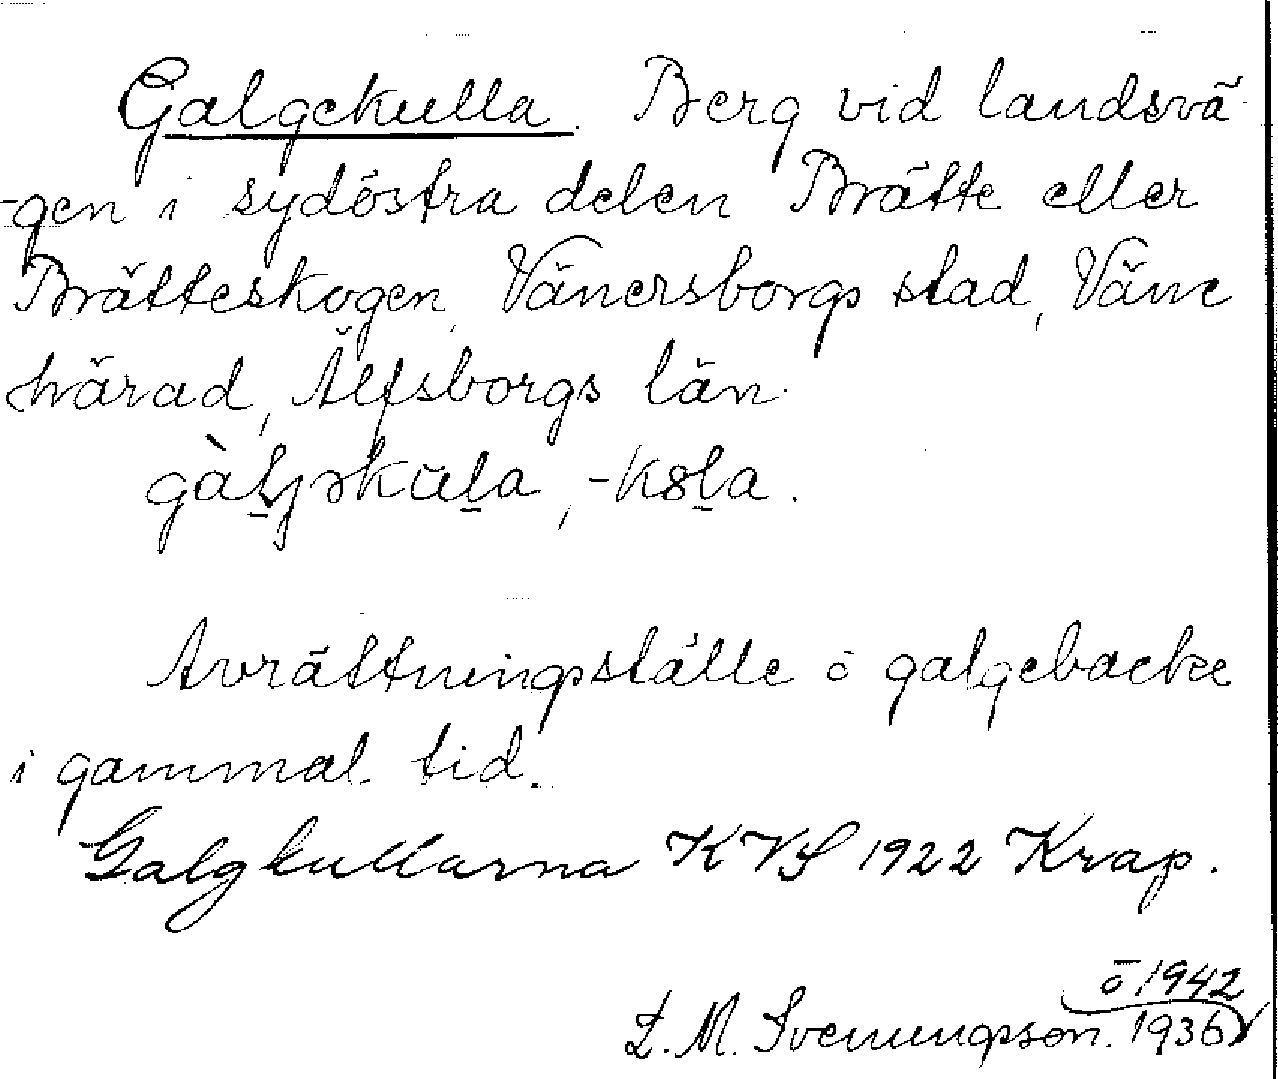 Galgekulla. Berg vid landsvä-
gen i sydöstra delen Brätte eller
Brätteskogen, Vänersborgs stad, Väne
härad, Älfsborgs län.
Avrättningställe o galgebacke
i gammal tid.
Galgkullarna KVS 1922 Krap.
o 1942
L. M. Svenungsson. 1936